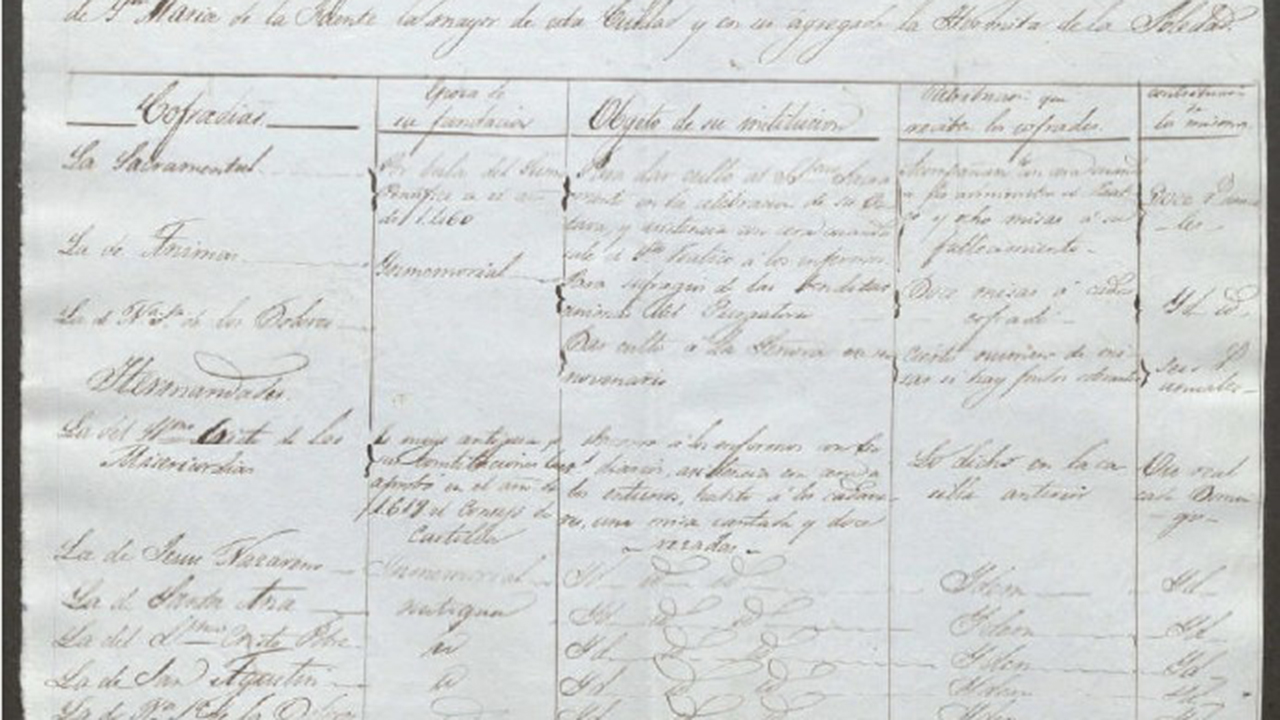 de Sta Maria de la Fuente la mayor de esta Ciudad y en su agregada la Hermita de la Soledad.
Cofradias
Epoca de
su fundacion
Objeto de su institucion
que
reciben los cofrades.
contribucion
La Sacramental
Por bula del Sumo
Pontifice en el año
de 1.460
Para dar culto al Smo Sacra
mento en la celebracion de su Oc
tava, y asistencia con cera cuando
sale el Sto Viatico a los enfermos
y ocho misas á su
fallecimiento.
Doce Rs anua
les
La de Animas
Inmemorial
Para sufragio de las benditas
animas del Purgatorio
Doce misas á cada
cofrade
Id. id.
La de Na Sa de los Dolores
Dar culto á la Señora en su
novenario
Cierto numero de mi
sas si hay fondos
Seis Rs
anuales
Hermandades.
La del Smo Cristo de las
Misericordias
Es muy antigua y
sus constituciones las
aprobó en el año de
1.619 el Consejo de
Castilla
Socorro á los enfermos con
diarios, asistencia con cera á
los entierros,
una misa cantada y doce
rezadas.
Lo dicho en la ca
silla anterior
Un real
cada Domin
go
La de Jesus Nazareno
Inmemorial
Id id id
Idem
Id
La de Santa Ana
antigua
Id id id
Idem
Id
La del Smo Cristo
id
Id id id
Idem
Id
La de San Agustin
id
Id id id
Idem
Id
La de Na Sa de la